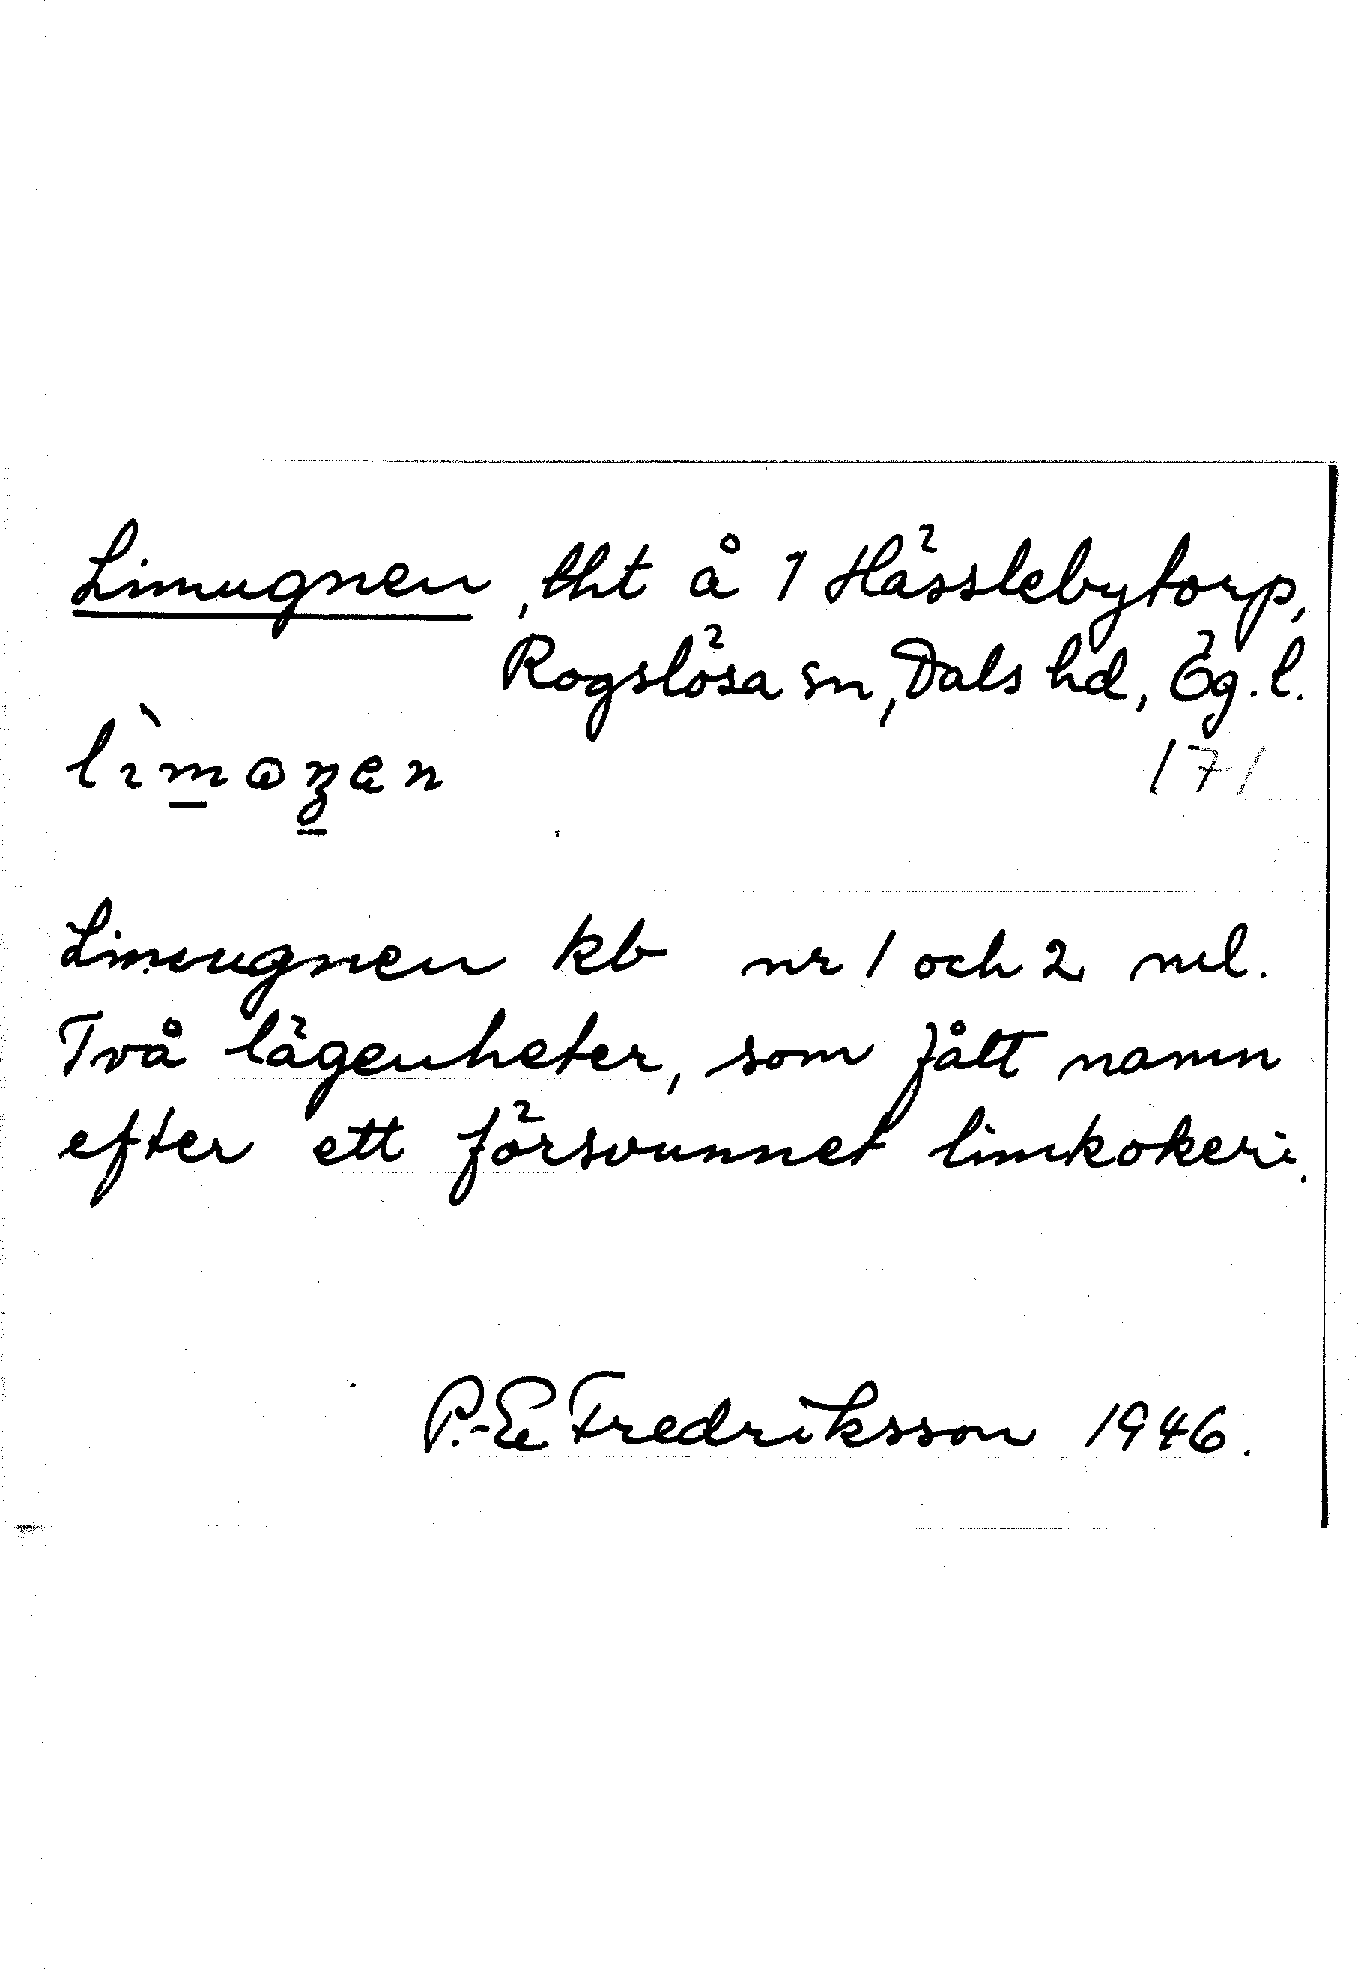 Limugnen, tht å 1 Hässlebytorp,
Rogslösa sn, Dals hd, Ög. l.
171
Limugnen kb nr 1 och 2 ml.
Två lägenheter, som fått namn
efter ett försvunnet limkokeri.
P.-E Fredriksson 1946.